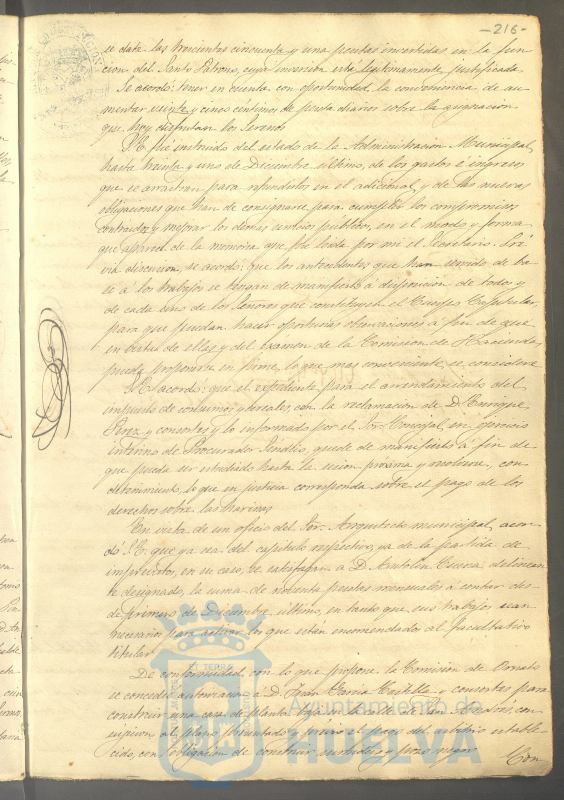 -216-
se data las trescientas cincuenta y una pesetas invertidas en la fun-
cion del Santo Patrono, cuya inversion está legitimamente justificada.
Se acordó: tener en cuenta con oportunidad la conveniencia de au-
mentar veinte y cinco céntimos de peseta diarios sobre la asignación
que hoy disfrutan los Serenos
S. E. fué instruido del estado de la Administracion Municipal,
hasta treinta y uno de Diciembre último, de los gastos é ingresos
que se arrastran para refundirlos en el adicional, y de las nuevas
obligaciones que han de consignarse para cumplir los compromisos
contraidos y mejorar los demás servicios públicos, en el modo y forma
que aparece de la memoria que fué leida por mi el Secretario. Pré-
via discusion, se acordó: que los antecedentes que han servido de ba-
se á los trabajos se tengan de manifiesto á disposicion de todos y
de cada uno de los Señores que constituyen el Cuerpo Capitular,
para que puedan hacer oportunas observaciones á fin de que
en virtud de ellas y del examen de la Comision de Hacienda,
pueda proponerse en firme, lo que mas conveniente se considere
S. E. acordó: que el expediente para el arrendamiento del
impuesto de consumos y cereales, con la reclamacion de D. Enrique
Perez y consortes y lo informado por el Sor. Concejal, en ejercicio
interino de Procurador Síndico, quede de manifiesto á fin de
que pueda ser estudiado hasta la sesion próxima y resolver, con
detenimiento, lo que en justicia corresponda sobre el pago de los
derechos sobre las harinas
En vista de un oficio del Sor. Arquitecto municipal, acor-
dó S. E. que ya sea del capítulo respectivo, ya de la partida de
imprevistos, en su caso, se satisfagan á D. Antolin delinean-
te designado, la suma de noventa pesetas mensuales á contar des-
de primero de Diciembre último, en tanto que sus trabajos sean
necesarios para activar los que están encomendados al facultativo
titular
De conformidad con lo que propone la Comision de Ornato
se concede autorizacion á D. Juan Garcia y consortes para
construir una casa de planta baja en la calle de San José, con
sujecion al plano presentado y prévio el pago del arbitrio estable-
cido, con obligacion de construir y pozo negro
Con
Ayuntamiento de
HUELVA